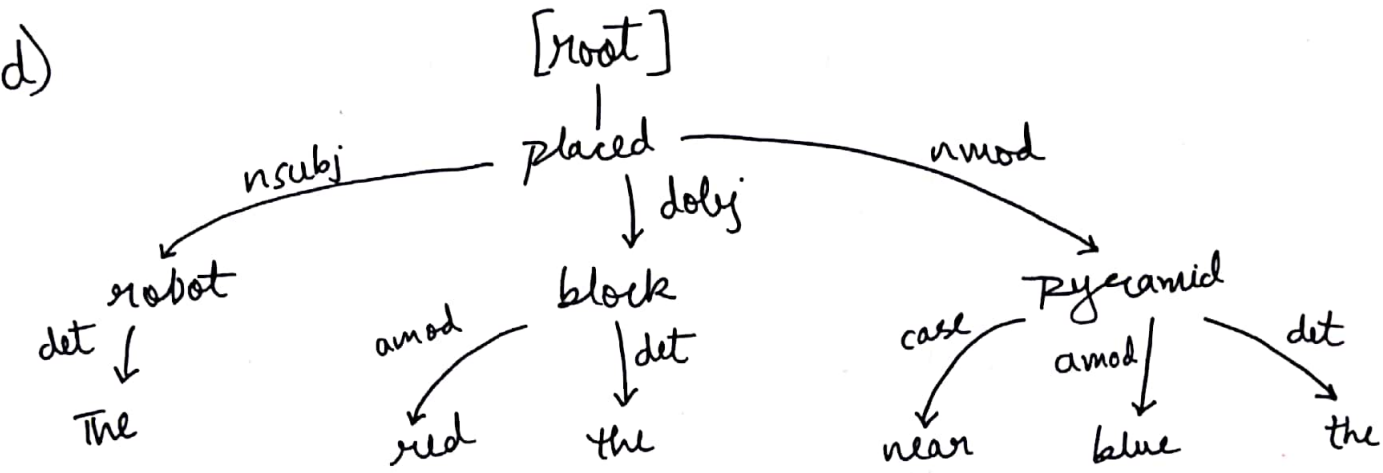 d)
[root]
placed
nsubj
dobj
nmod
robot
block
Pyramid
det
amod
det
case
amod
det
The
red
the
near
blue
the